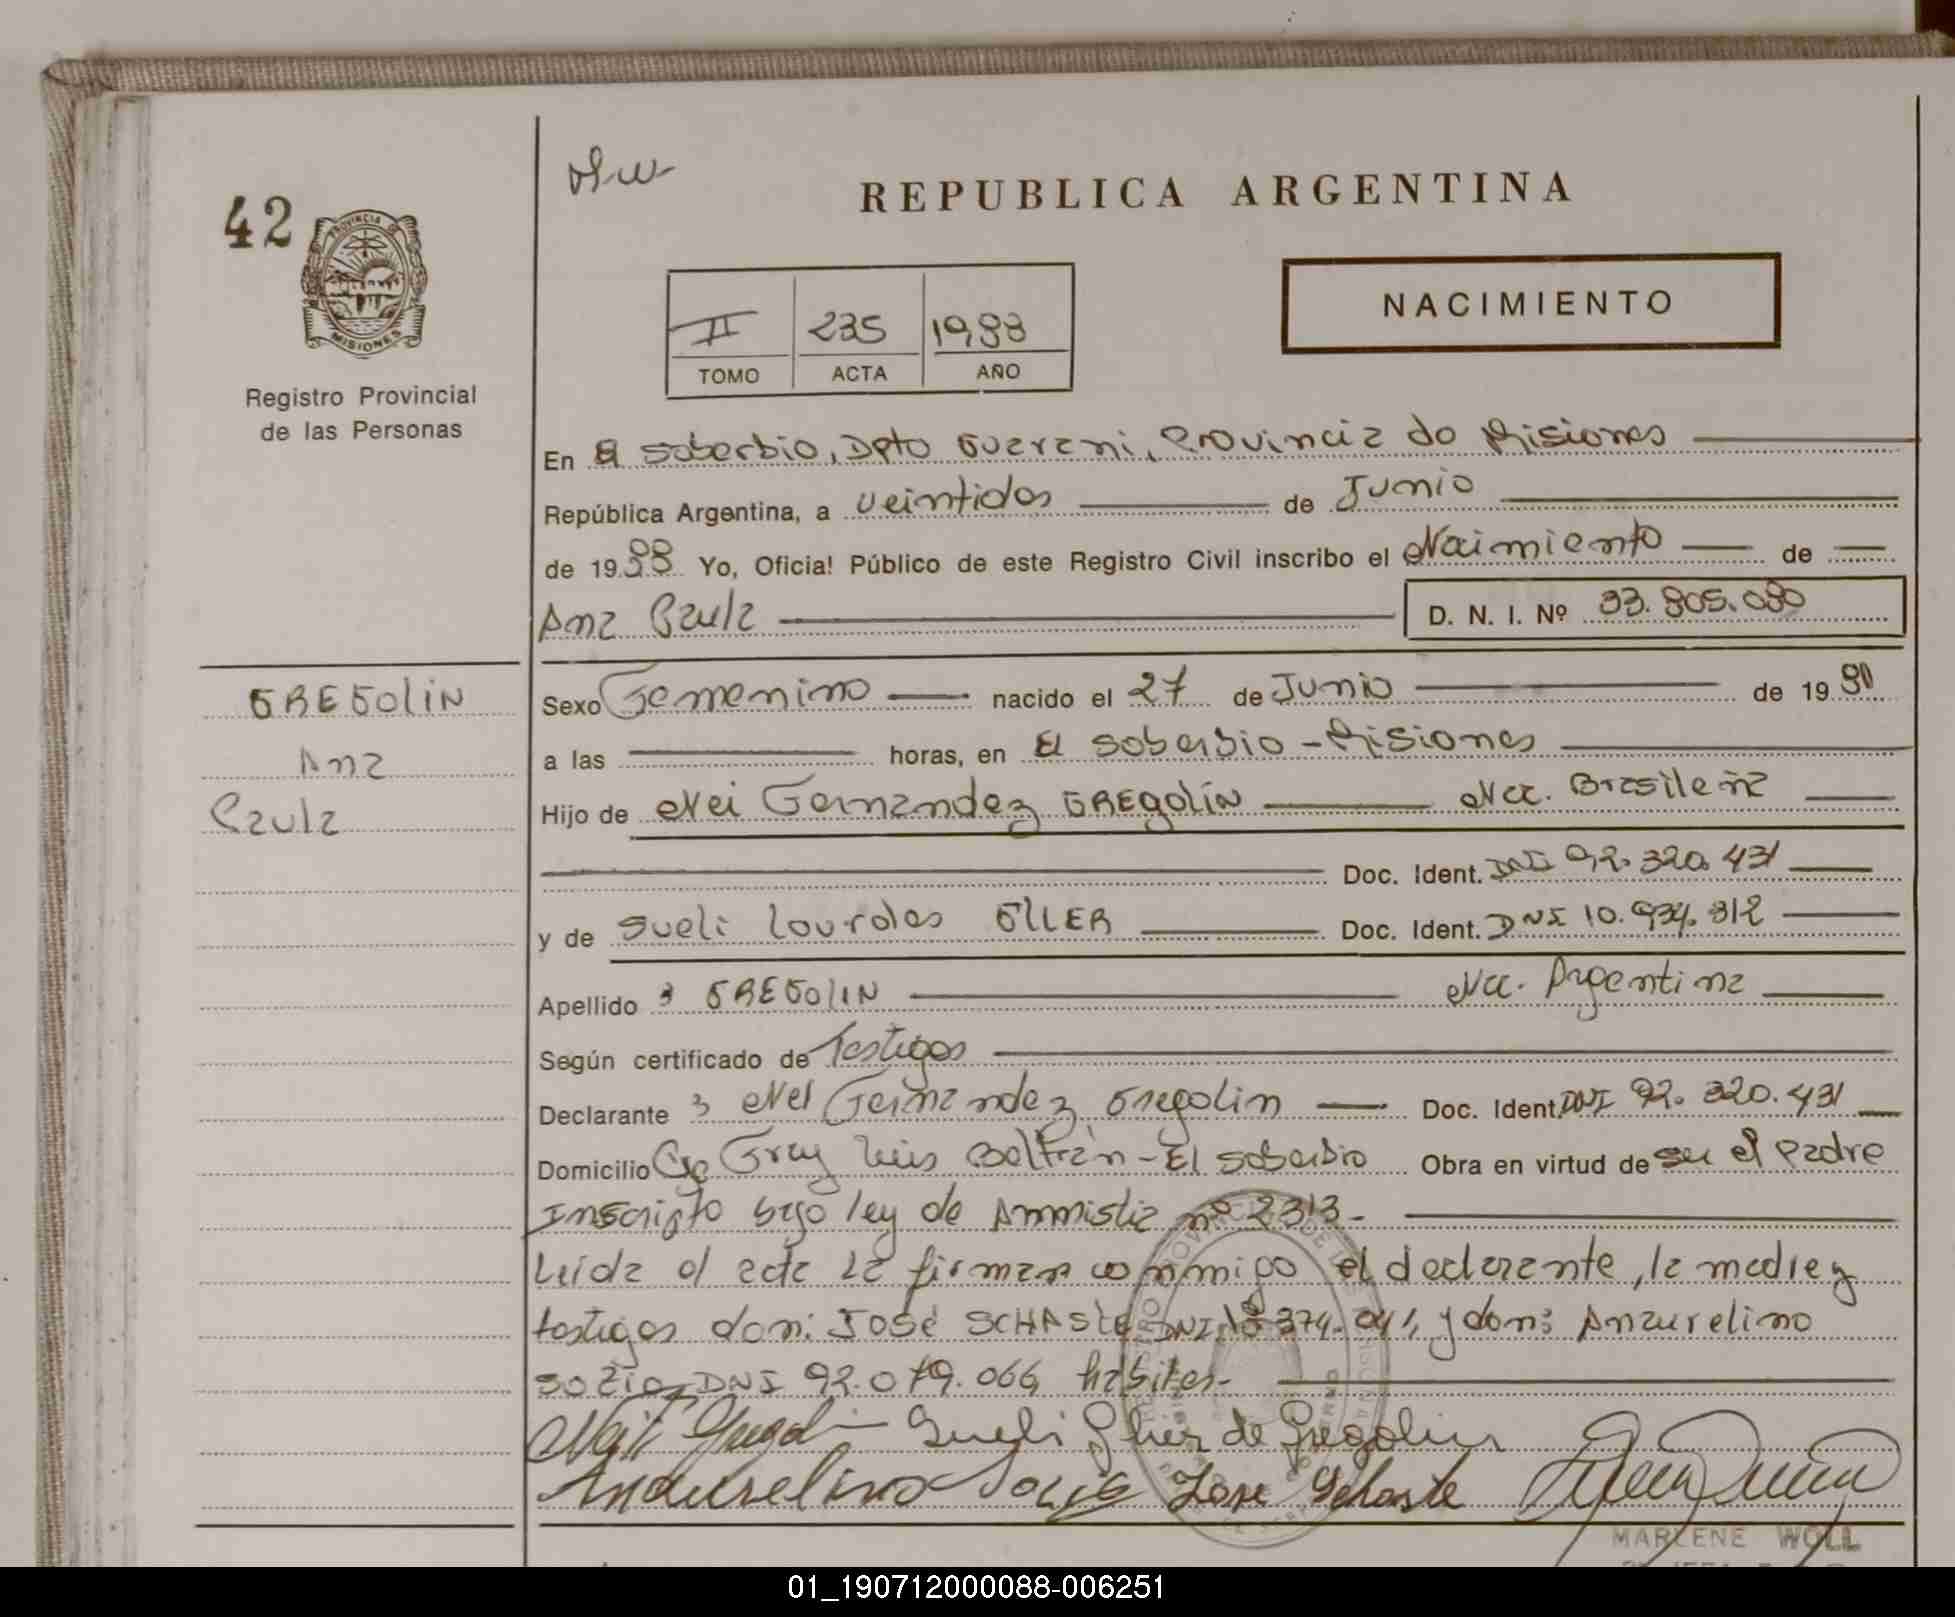 42
PROVINCIA DE
MISIONES
Registro Provincial
de las Personas
REPUBLICA ARGENTINA
NACIMIENTO
II 235 1988
TOMO ACTA AÑO
En El Soberbio, Dpto Guarani, Provincia de Misiones
República Argentina, a veintidos de Junio
de 1988 Yo, Oficial Público de este Registro Civil inscribo el Nacimiento de
Ana Paula D. N. I. Nº 33.805.080
GREGOLIN
Ana
Paula
Sexo Femenino nacido el 27 de Junio de 1980
a las horas, en El Soberbio - Misiones
Hijo de Nei Fernandez GREGOLIN Nac. Brasileña
Doc. Ident. DNI 92.320.431
y de Sueli Lourdes GLLER Doc. Ident. DNI 10.934.812
Apellido GREGOLIN Nac. Argentina
Según certificado de Testigos
Declarante Nei Fernandez Gregolin Doc. Ident. DNI 92.320.431
Domicilio Fray Luis Beltrán - El Soberbio Obra en virtud de ser el Padre
Inscripto bajo ley de Amnistia nº 2313.-
Leida el acta la firman conmigo el declarante, la madre y
testigos don: José SCHASTE DNI 18.374.041, y don: Anaurelino
DNI 92.079.066 habiles.-
Sueli de Gregolin
Jose Schaste
MARLENE WOLL
01_190712000088-006251